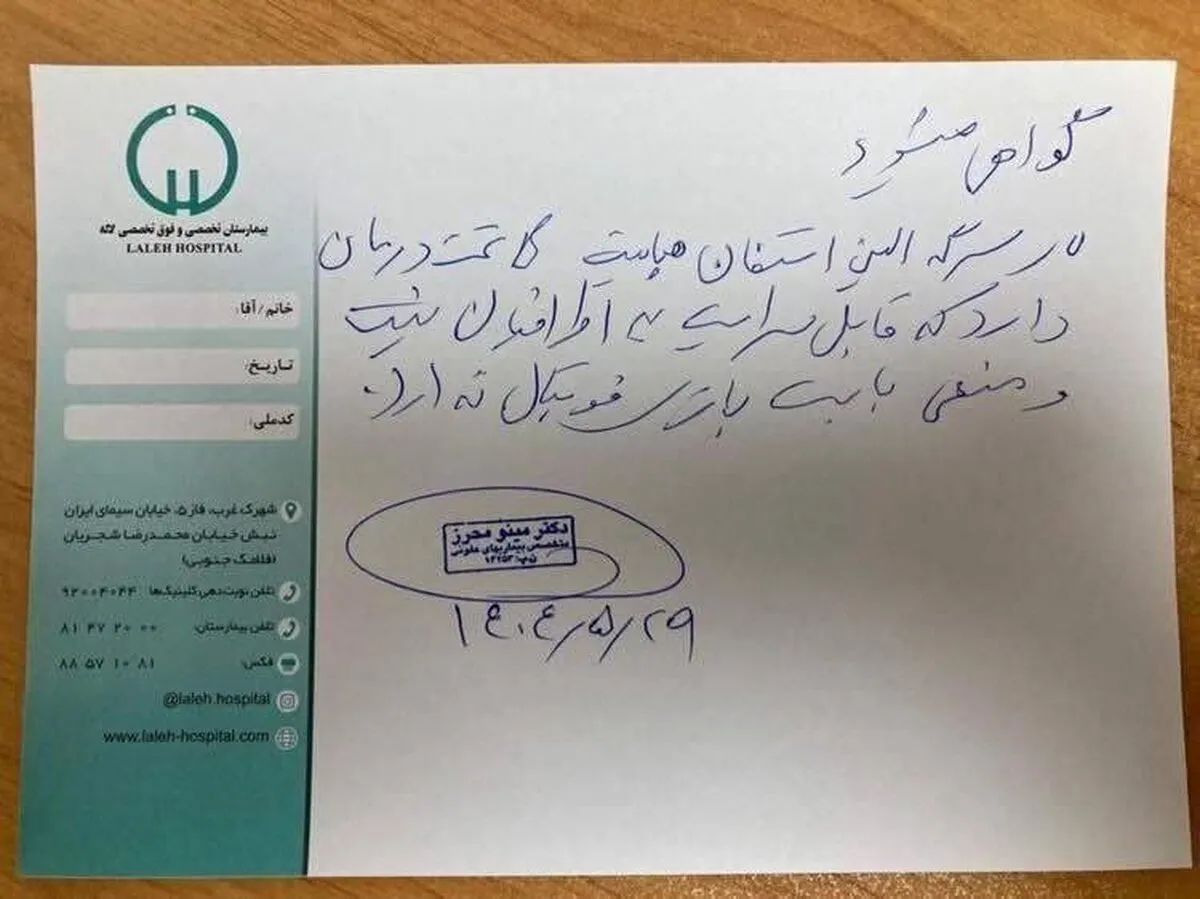 بیمارستان تخصصی و فوق تخصصی لاله
LALEH HOSPITAL
خانم / آقا:
تاریخ:
کدملی:
شهرک غرب، فاز ۵، خیابان سیمای ایران
نبش خیابان محمدرضا شجریان
(فلامک جنوبی)
تلفن نوبت‌دهی کلینیک‌ها ۹۲۰۰۴۰۴۴
تلفن بیمارستان: ۸۱ ۴۷ ۲۰ ۰۰
فکس: ۸۸ ۵۷ ۱۰ ۸۱
@laleh.hospital
www.laleh-hospital.com
گواهی میشود
سرگه الین استفان هپاتیت تحت درمان
دارد که قابل سرایت به اطرافیان نیست
و منعی بابت بازی فوتبال ندارد.
دکتر مینو محرز
متخصص بیماریهای عفونی
۱۴۰۴/۵/۲۹